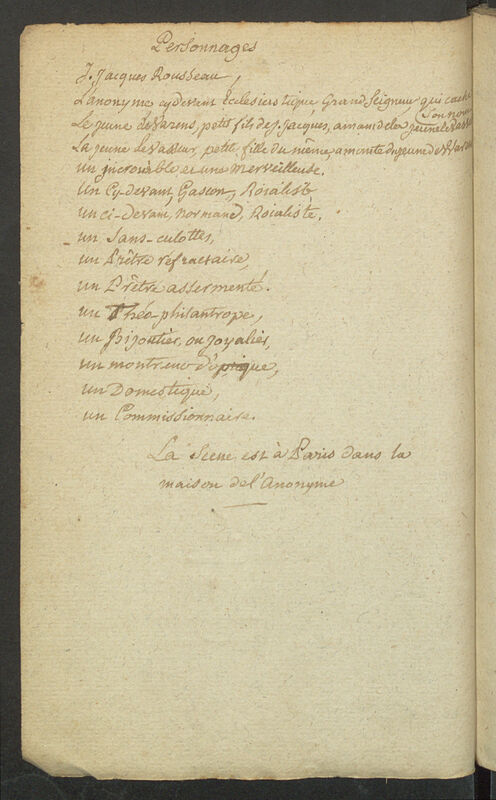 Personnages
J. Jacques Rousseau,
L'anonyme cy devant Eclesiastique, Grand Seigneur qui cache
son nom
Le jeune de Varens, petit fils de J. Jacques, amant de la jeune le Vasseur
La jeune le Vasseur, petite fille du même, amante du jeune de Varens
un incroiable et une Merveilleuse.
un Cy-devant, Gascon, Roialiste
un ci-devant, normand, Roialiste.
un Sans-culottes,
un Prêtre réfractaire,
un Prêtre assermenté.
un Théo-philantrope,
un Bijoutier, ou joyalier,
un montreur d'optique,
un Domestique,
un Commissionnaire.
La Scene est à Paris dans la
maison de l'Anonyme